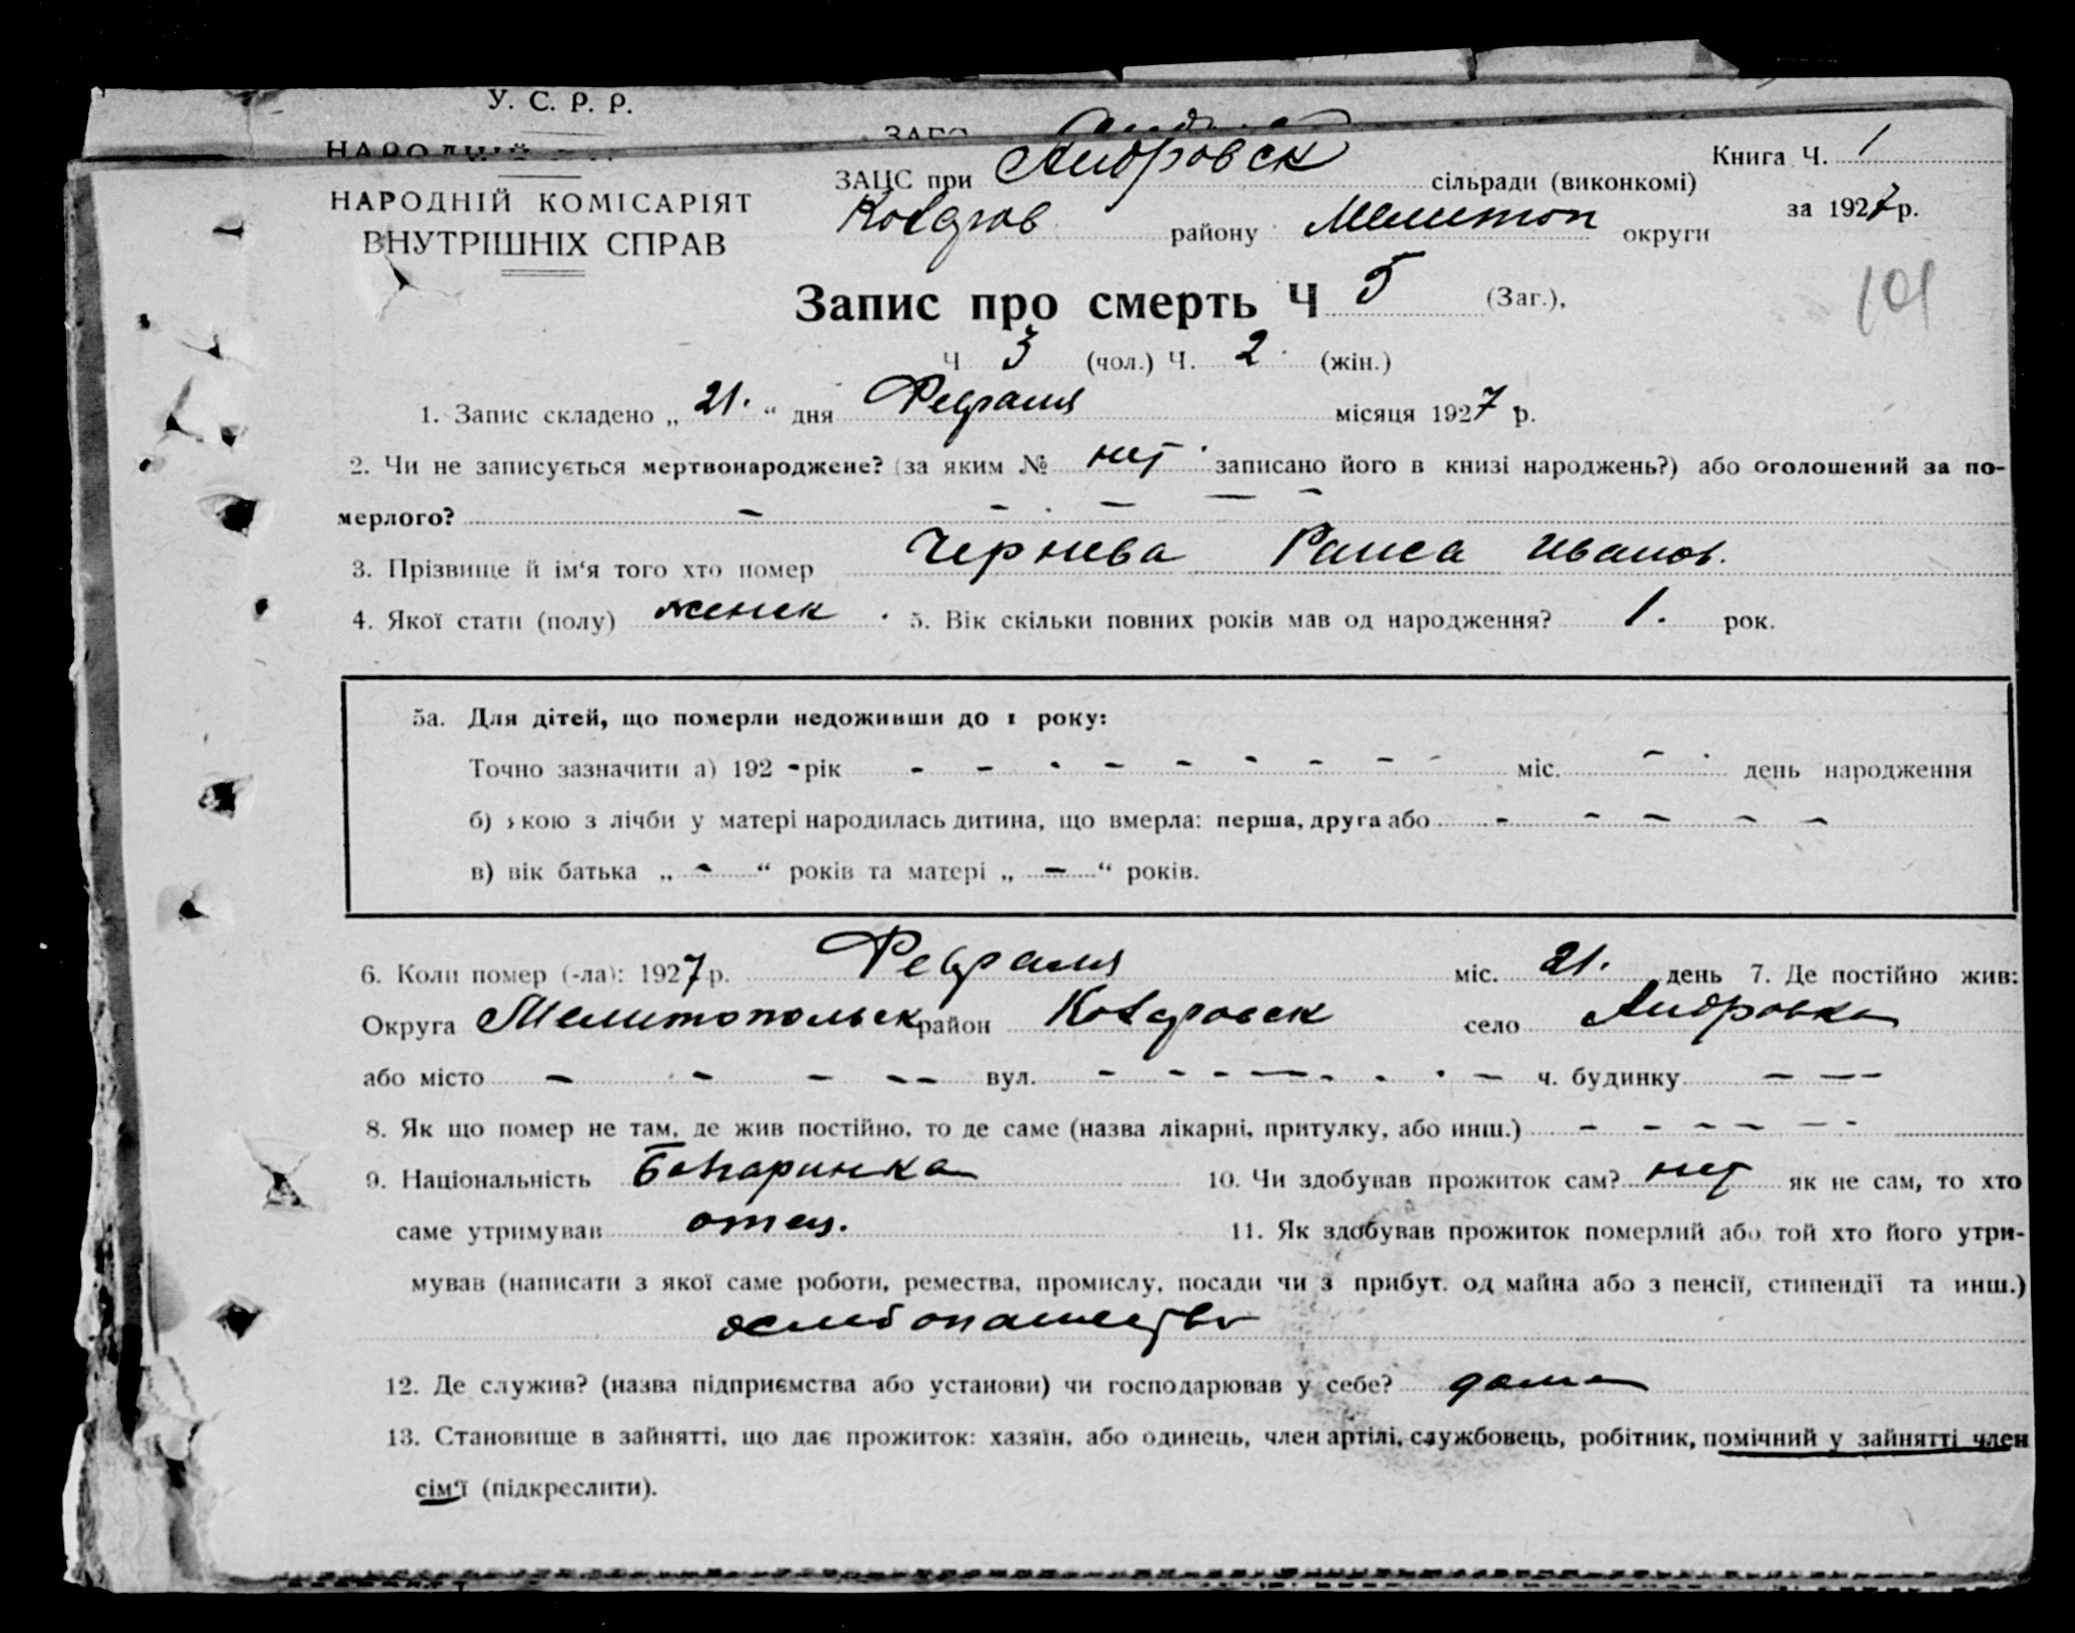 У. С. Р. Р.
НАРОДНІЙ
Книга Ч. 1
ЗАЦС при Андровск сільради (виконкомі)
НАРОДНІЙ КОМІСАРІЯТ
за 1927 р.
району Мелитоп округи
ВНУТРІШНІХ СПРАВ
Запис про смерть Ч 5 (Заг.),
101
Ч 3 (чол.) Ч. 2 (жін.)
1. Запис складено „ 21. “ дня Февраля місяця 1927 р.
2. Чи не записується мертвонароджене? (за яким № нет записано його в книзі народжень?) або оголошений за по-
мерлого? - - - - -
3. Прізвище й ім‘я того хто помер Чернева Раиса Иванов.
4. Якої стати (полу) женск. 5. Вік скільки повних років мав од народження? 1. рок.
5а. Для дітей, що померли недоживши до 1 року:
Точно зазначити а) 192 - рік - - - - - - - - - міс. - - день народження
б) якою з лічби у матері народилась дитина, що вмерла: перша, друга або - - - - -
в) вік батька „ - “ років та матері „ - “ років.
6. Коли помер (-ла): 1927 р. Февраля міс. 21. день 7. Де постійно жив:
Округа Мелитопольск район село Андровка
або місто - - - - - вул. - - - - - - - - ч. будинку - - -
8. Як що помер не там, де жив постійно, то де саме (назва лікарні, притулку, або инш.) - - - - - -
9. Національність Болгаринка 10. Чи здобував прожиток сам? нет як не сам, то хто
саме утримував отец. 11. Як здобував прожиток померлий або той хто його утри-
мував (написати з якої саме роботи, ремества, промислу, посади чи з прибут. од майна або з пенсії, стипендії та инш.)
12. Де служив? (назва підприємства або установи) чи господарював у себе? дома
13. Становище в зайнятті, що дає прожиток: хазяїн, або одинець, член артілі, службовець, робітник, помічний у зайнятті член
сім‘ї (підкреслити).